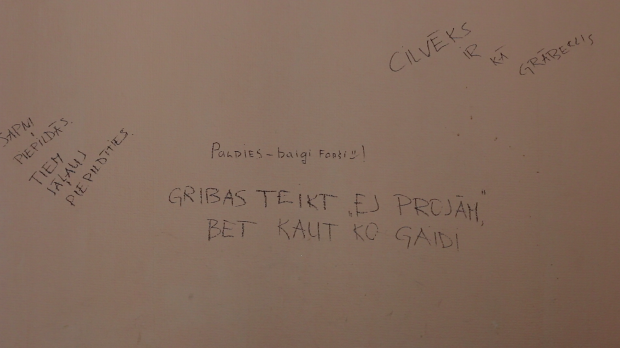 CILVĒKS
IR
KĀ
SAPŅI
PIEPILDĀS.
TIEM
JĀĻAUJ
PIEPILDĪTIES.
PALDIES - baigi Forši!!!
GRIBAS TEIKT „EJ PROJĀM,"
BET KAUT KO GAIDI